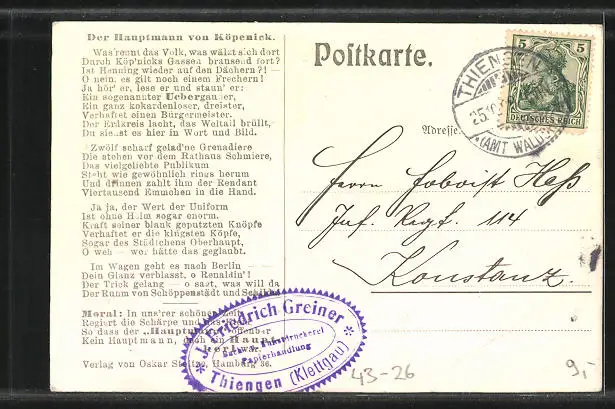 Der Hauptmann von Köpenick.
Was rennt das Volk, was wälzt sich dort
Durch Köp'nicks Gassen brausend fort?
Ist Henning wieder auf den Dächern?! —
O nein, es gilt noch einem Frechern!
Ja hör' er, lese er und staun' er:
Ein sogenannter Uebergauner,
Ein ganz kokardenloser, dreister,
Verhaftet einen Bürgermeister.
Der Erdkreis lacht, das Weltall brüllt,
Du siehst es hier in Wort und Bild.
Zwölf scharf gelad'ne Grenadiere
Die stehen vor dem Rathaus Schmiere,
Das vielgeliebte Publikum
Steht wie gewöhnlich rings herum
Und drinnen zahlt ihm der Rendant
Viertausend Emmchen in die Hand.
Ja ja, der Wert der Uniform
Ist ohne Helm sogar enorm.
Kraft seiner blank geputzten Knöpfe
Verhaftet er die klügsten Köpfe,
Sogar des Städtchens Oberhaupt,
O weh — wer hätte das geglaubt.
Im Wagen geht es nach Berlin —
Dein Glanz verblasst, o Renaldin'!
Der Trick gelang — o sagt, was will da
Der Ruhm von Schöppenstädt und Schilda!
Moral: In uns'rer schönen Zeit
Regiert die Schärpe und das Kleid
So dass der „Hauptmann" offenbar
Kein Hauptmann, doch ein Haupt-
kerl war.
Verlag von Oskar Hamburg 36.
Postkarte.
Adresse.
5 5
DEUTSCHES REICH
THIENGEN
25.10
(AMT WALD
Herrn Hoboist Heß
Inf. Regt. 114
Konstanz.
* J. Friedrich Greiner *
Buch- u. Kunstdruckerei
Papierhandlung
Thiengen (Klettgau)
43-26
9,-